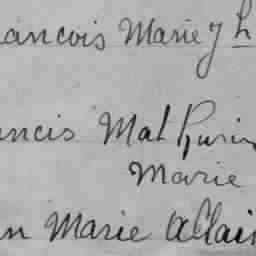 ancois Marie J h
ncis Mathurin
Marie
n Marie Allain